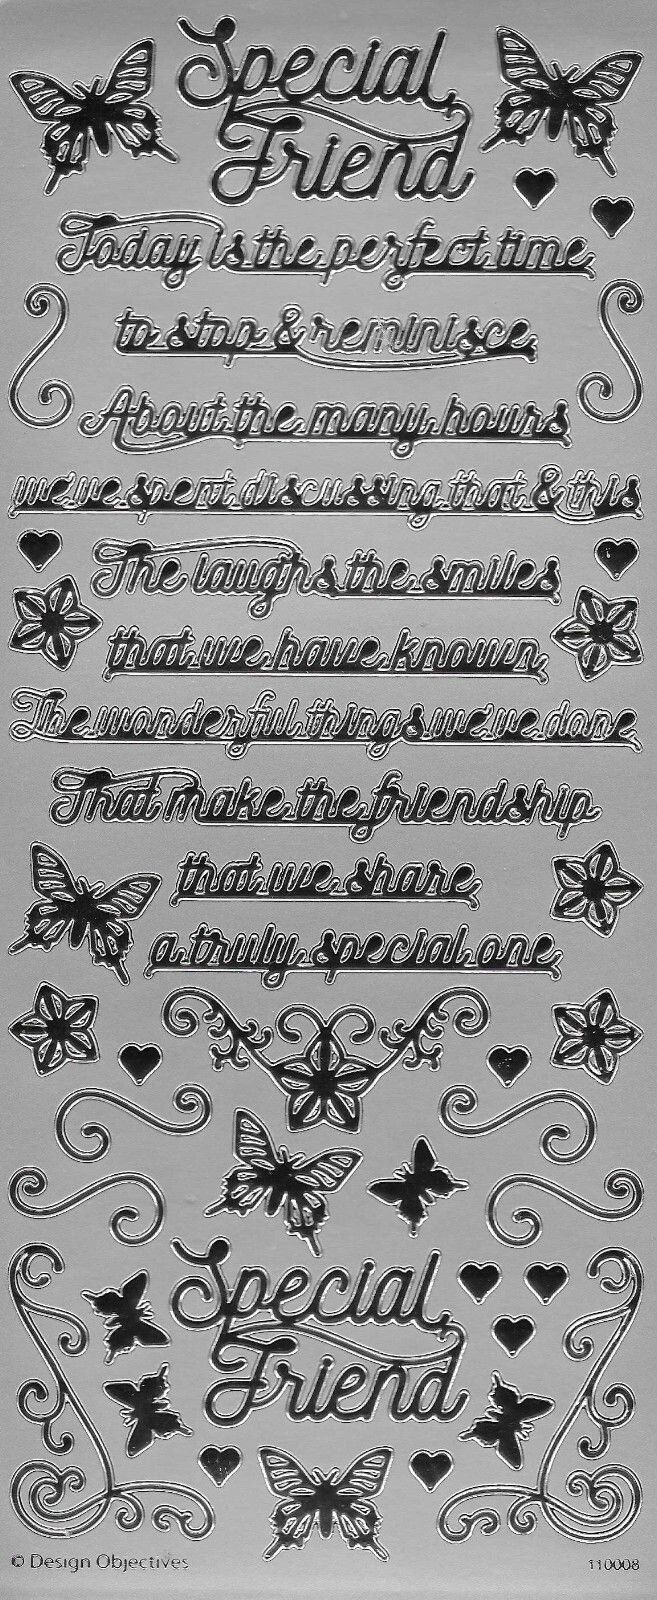 Special
Friend
Today is the perfect time
to stop & reminisce
About the many hours
we've spent discussing that & this
The laughs the smiles
that we have known
The wonderful things we've done
That make the friendship
that we share
a truly special one
Special
Friend
© Design Objectives
110008